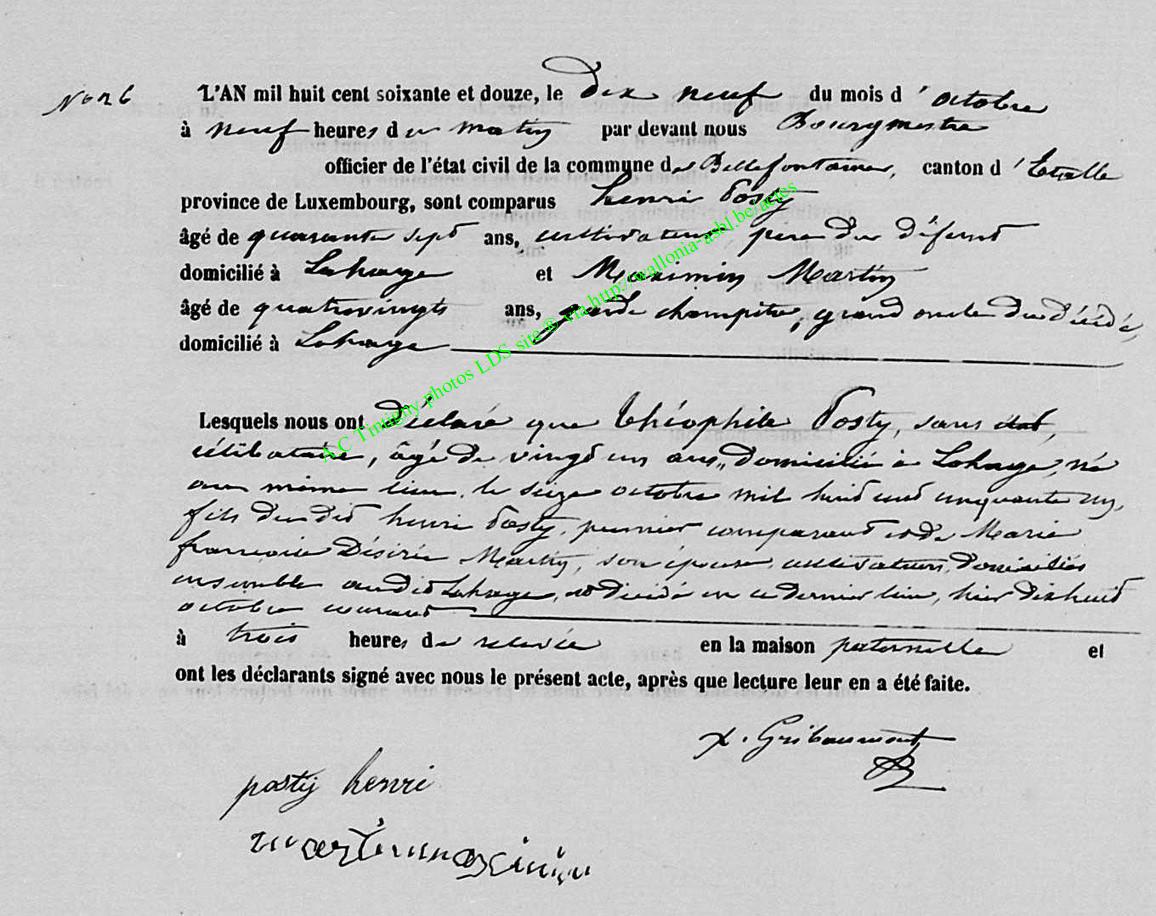 N° 26
L'AN mil huit cent soixante et douze, le dix neuf du mois d'octobre
à neuf heures du matin par devant nous Bourgmestre
officier de l'état civil de la commune de Bellefontaine, canton d'Etalle
province de Luxembourg, sont comparus henri Posty
âgé de quarante sept ans, cultivateur, pere du défunt
domicilié à Lahage et Maximin Martin
âgé de quatrevingts ans, garde champêtre, grand oncle du décédé,
domicilié à Lahage
Lesquels nous ont déclaré que théophile Posty, sans état,
célibataire, âgé de vingt un ans, domicilié à Lahage, né
au même lieu, le seize octobre mil huit cent cinquante un,
fils du dit henri Posty, premier comparant et de Marie
françoise Désirée Martin, son épouse, cultivateurs, domiciliés
ensemble audit Lahage, est décédé en ce dernier lieu, hier dixhuit
octobre courant
à trois heures de relevée en la maison paternelle et
ont les déclarants signé avec nous le présent acte, après que lecture leur en a été faite.
x. Gribaumont
postij henri
martin maximin
A.C Tintigny photos LDS site® via http://wallonia-asbl.be/actes